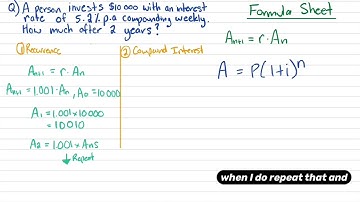 Q) A person invests $10000 with an interest
rate of 5.2% p.a compounding weekly.
How much after 2 years?
① Recurrence
Aₙ₊₁ = r · Aₙ
Aₙ₊₁ = 1.001 · Aₙ , A₀ = 10000
A₁ = 1.001 × 10000
= 10010
A₂ = 1.001 × Ans
↓ Repeat
② Compound Interest
Formula Sheet
Aₙ₊₁ = r · Aₙ
A = P(1+i)ⁿ
when I do repeat that and